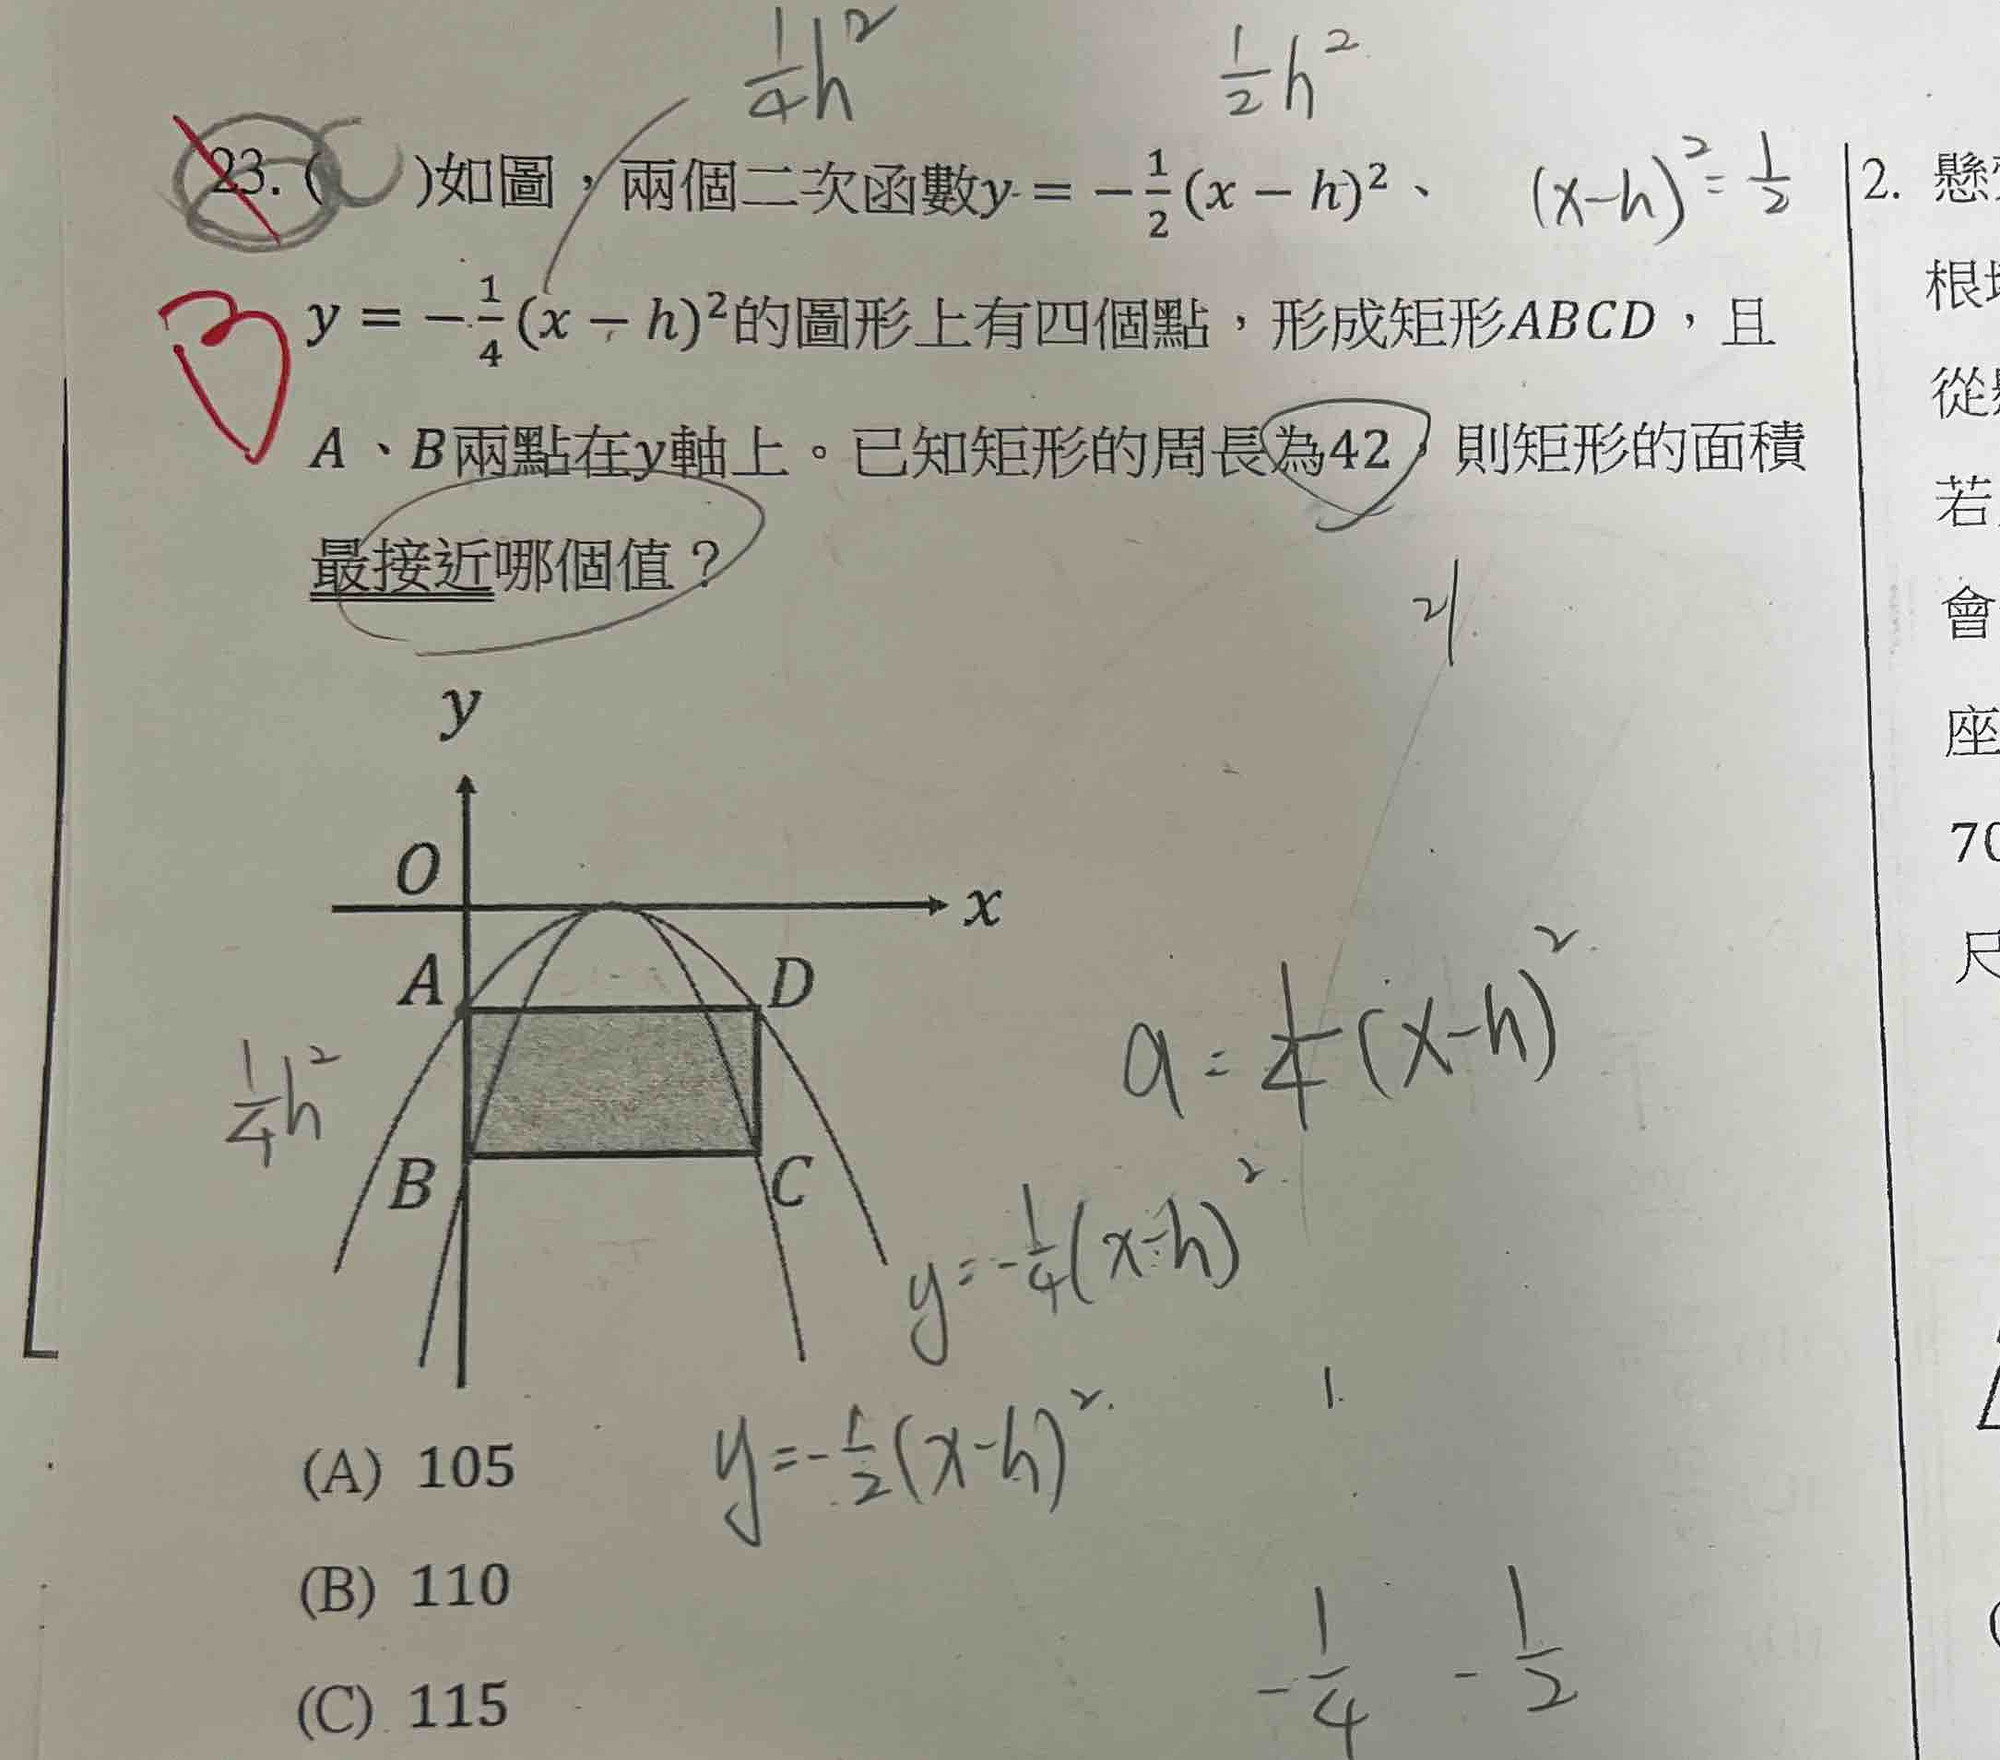 ¼h² ½h²
23. ( )如圖，兩個二次函數y = −½(x − h)²、 (x-h)² = ½
y = −¼(x − h)²的圖形上有四個點，形成矩形ABCD，且
A、B兩點在y軸上。已知矩形的周長為42，則矩形的面積
最接近哪個值？
21
y
O
x
A
D
¼h²
B
C
a = ¼(x-h)²
y = -¼(x-h)²
y = -½(x-h)²
1.
(A) 105
(B) 110
(C) 115
-¼ -½
2.
根
從
若
會
座
70
尺